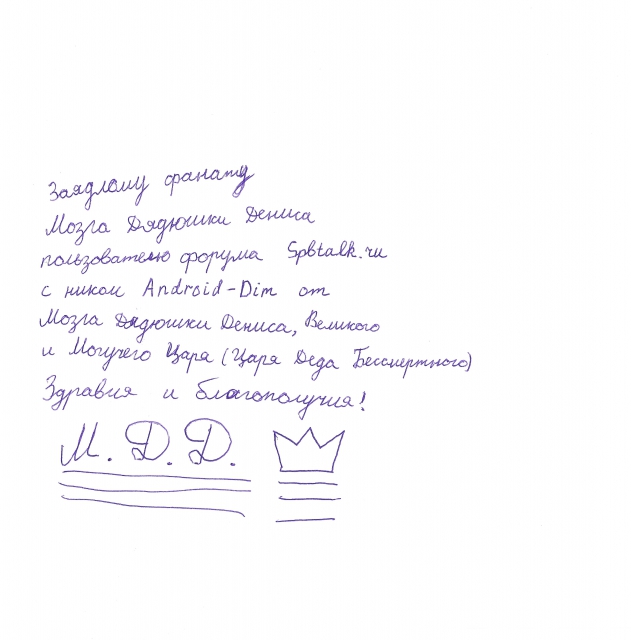 Заядлому фанату
Мозга Дядюшки Дениса
пользователю форума Spbtalk.ru
с ником Android-Dim от
Мозга Дядюшки Дениса, Великого
и Могучего Царя (Царя Деда Бессмертного)
Здравия и благополучия!
М. Д. Д.